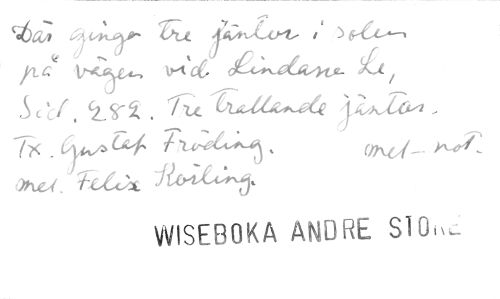 Där ginge tre jäntor i solen
på vägen vid Lindane Le,
Sid. 282. Tre trallande jäntor.
Tx. Gustaf Fröding. mel-not.
mel. Felix Körling.
WISEBOKA ANDRE STORE